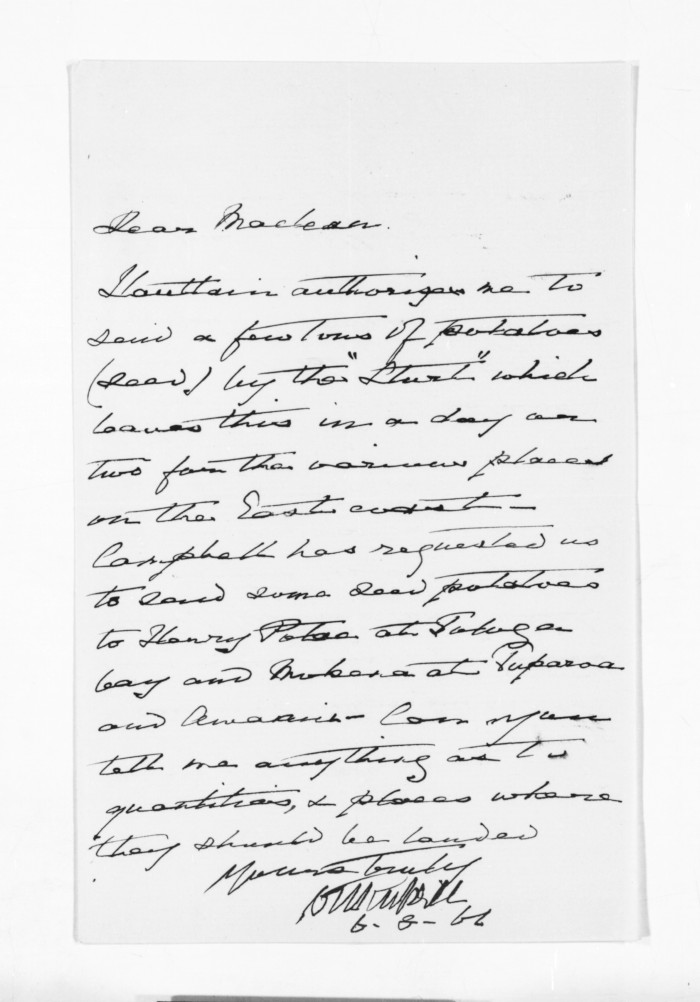 Dear Maclean.
Haultain authorizes me to
send a few tons of potatoes
(seed) by the "Sturt" which
leaves this in a day or
two for the various places
on the East coast -
Campbell has requested us
to send some seed potatoes
to Henry Potae at Tokoga
bay and Mokena at Tuparoa
and Awaanui - Can you
tell me anything as to
quantities, & places where
they should be landed
Yours truly
6-8-66